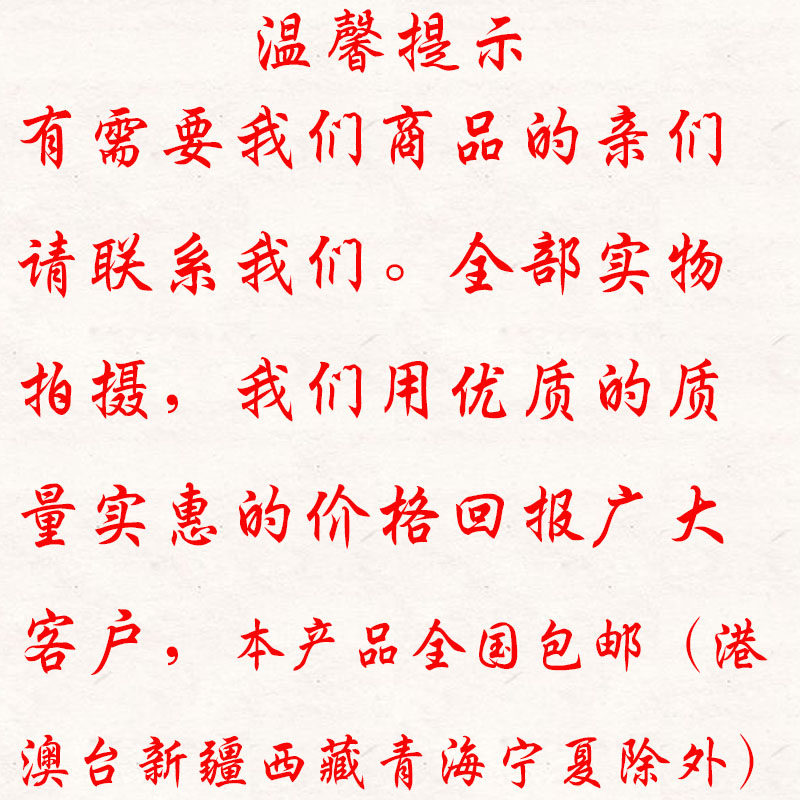 温馨提示
有需要我们商品的亲们
请联系我们。全部实物
拍摄，我们用优质的质
量实惠的价格回报广大
客户，本产品全国包邮（港
澳台新疆西藏青海宁夏除外）